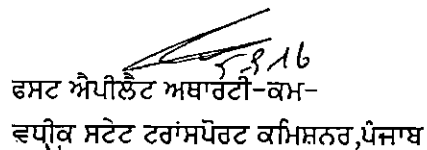 5.9.16
ਫਸਟ ਐਪੀਲੈਟ ਅਥਾਰਟੀ-ਕਮ-
ਵਧੀਕ ਸਟੇਟ ਟਰਾਂਸਪੋਰਟ ਕਮਿਸ਼ਨਰ,ਪੰਜਾਬ